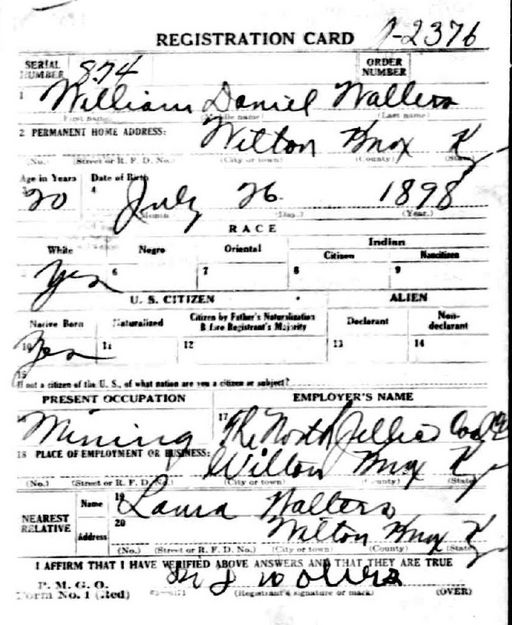 REGISTRATION CARD 1-2376
SERIAL NUMBER 874 ORDER NUMBER
1 William Daniel Walters
(First name) (Middle name) (Last name)
2 PERMANENT HOME ADDRESS: Wilton Knox Ky
(No.) (Street or R. F. D. No.) (City or town) (County) (State)
Age in Years Date of Birth
20 4 July 26 1898
(Month) (Day.) (Year.)
RACE
White Negro Oriental Indian
Citizen Noncitizen
Yes 6 7 8 9
U. S. CITIZEN ALIEN
Native Born Naturalized Citizen by Father's Naturalization Before Registrant's Majority Declarant Non-declarant
10 Yes 11 12 13 14
15
If not a citizen of the U. S., of what nation are you a citizen or subject?
PRESENT OCCUPATION EMPLOYER'S NAME
16 Mining 17 The North Jellico Coal Co
18 PLACE OF EMPLOYMENT OR BUSINESS: Wilton Knox Ky
(No.) (Street or R. F. D. No.) (City or town) (County) (State)
NEAREST RELATIVE Name 19 Laura Walters
Address 20 Wilton Knox Ky
(No.) (Street or R. F. D. No.) (City or town) (County) (State)
I AFFIRM THAT I HAVE VERIFIED ABOVE ANSWERS AND THAT THEY ARE TRUE
P. M. G. O.
Form No. 1 (Red) (Registrant's signature or mark) (OVER)